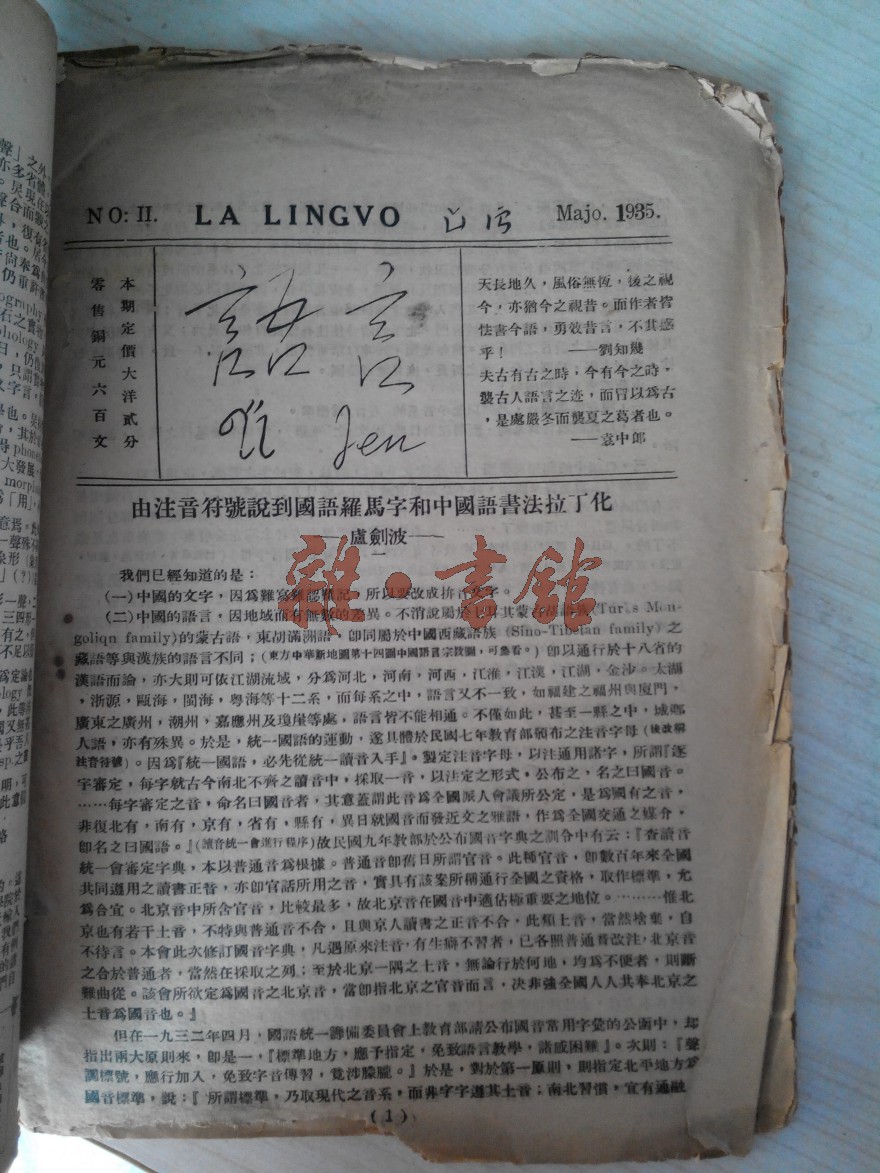 NO: II. LA LINGVO Majo. 1935.
本期定價大洋貳分
零售銅元六百文
語言
Yi Jen
天長地久，風俗無恆，後之視
今，亦猶今之視昔。而作者皆
怯書今語，勇效昔言，不其惑
乎！ ——劉知幾
夫古有古之時，今有今之時，
襲古人語言之迹，而冒以爲古
，是處嚴冬而襲夏之葛者也。
——袁中郎
由注音符號說到國語羅馬字和中國語書法拉丁化
——盧劍波——
一
我們已經知道的是：
(一)中國的文字，因爲難寫難認難記，所以要改成拼音文字。
(二)中國的語言，因地域而有無數的差異。不消說屬於土耳其蒙古
goliqn family)的蒙古語，東胡滿洲語，卽同屬於中國西藏語族 (Sino-Tibetan family) 之
藏語等與漢族的語言不同；(東方中華新地圖第十四圖中國語言宗教圖，可參看。) 卽以通行於十八省的
漢語而論，亦大則可依江湖流域，分爲河北，河南，河西，江淮，江漢，江湖，金沙。太湖
，浙源，甌海，閩海，粵海等十二系，而每系之中，語言又不一致，如福建之福州與廈門，
廣東之廣州，潮州，嘉應州及瓊崖等處，語言皆不能相通。不僅如此，甚至一縣之中，城鄉
人語，亦有殊異。於是，統一國語的運動，遂具體於民國七年教育部頒布之注音字母 (後改稱
注音符號)。因爲『統一國語，必先從統一讀音入手』。製定注音字母，以注通用諸字，所謂『逐
字審定，每字就古今南北不齊之讀音中，採取一音，以法定之形式，公布之，名之曰國音。
……每字審定之音，命名曰國音者，其意蓋謂此音爲全國派人會議所公定，是爲國有之音，
非復北有，南有，京有，省有，縣有，異日就國音而發近文之雅語，作爲全國交通之媒介，
卽名之曰國語。』(讀音統一會進行程序) 故民國九年教部於公布國音字典之訓令中有云：『查讀音
統一會審定字典，本以普通音爲根據。普通音卽舊日所謂官音。此種官音，卽數百年來全國
共同遵用之讀書正音，亦卽官話所用之音，實具有該案所稱通行全國之資格，取作標準，允
爲合宜。北京音中所含官音，比較最多，故北京音在國音中適佔極重要之地位。………惟北
京也有若干土音，不特與普通音不合，且與京人讀書之正音不合，此類土音，當然捨棄，自
不待言。本會此次修訂國音字典，凡遇原來注音，有生僻不習者，已各照普通音改注，北京音
之合於普通者，當然在採取之列；至於北京一隅之土音，無論行於何地，均爲不便者，則斷
難曲從。該會所欲定爲國音之北京音，當卽指北京之官音而言，決非強全國人人共奉北京之
土音爲國音也。』
但在一九三二年四月，國語統一籌備委員會上教育部請公布國音常用字彙的公函中，却
指出兩大原則來，卽是一，『標準地方，應予指定，免致語言教學，諸感困難』。次則：『聲
調標號，應行加入，免致字音傳習，竟涉朦朧。』於是，對於第一原則，則指定北平地方爲
國音標準，說：『所謂標準，乃取現代之音系，而非字字遵其土音；南北習慣，宜有通融
(1)
雜·書館